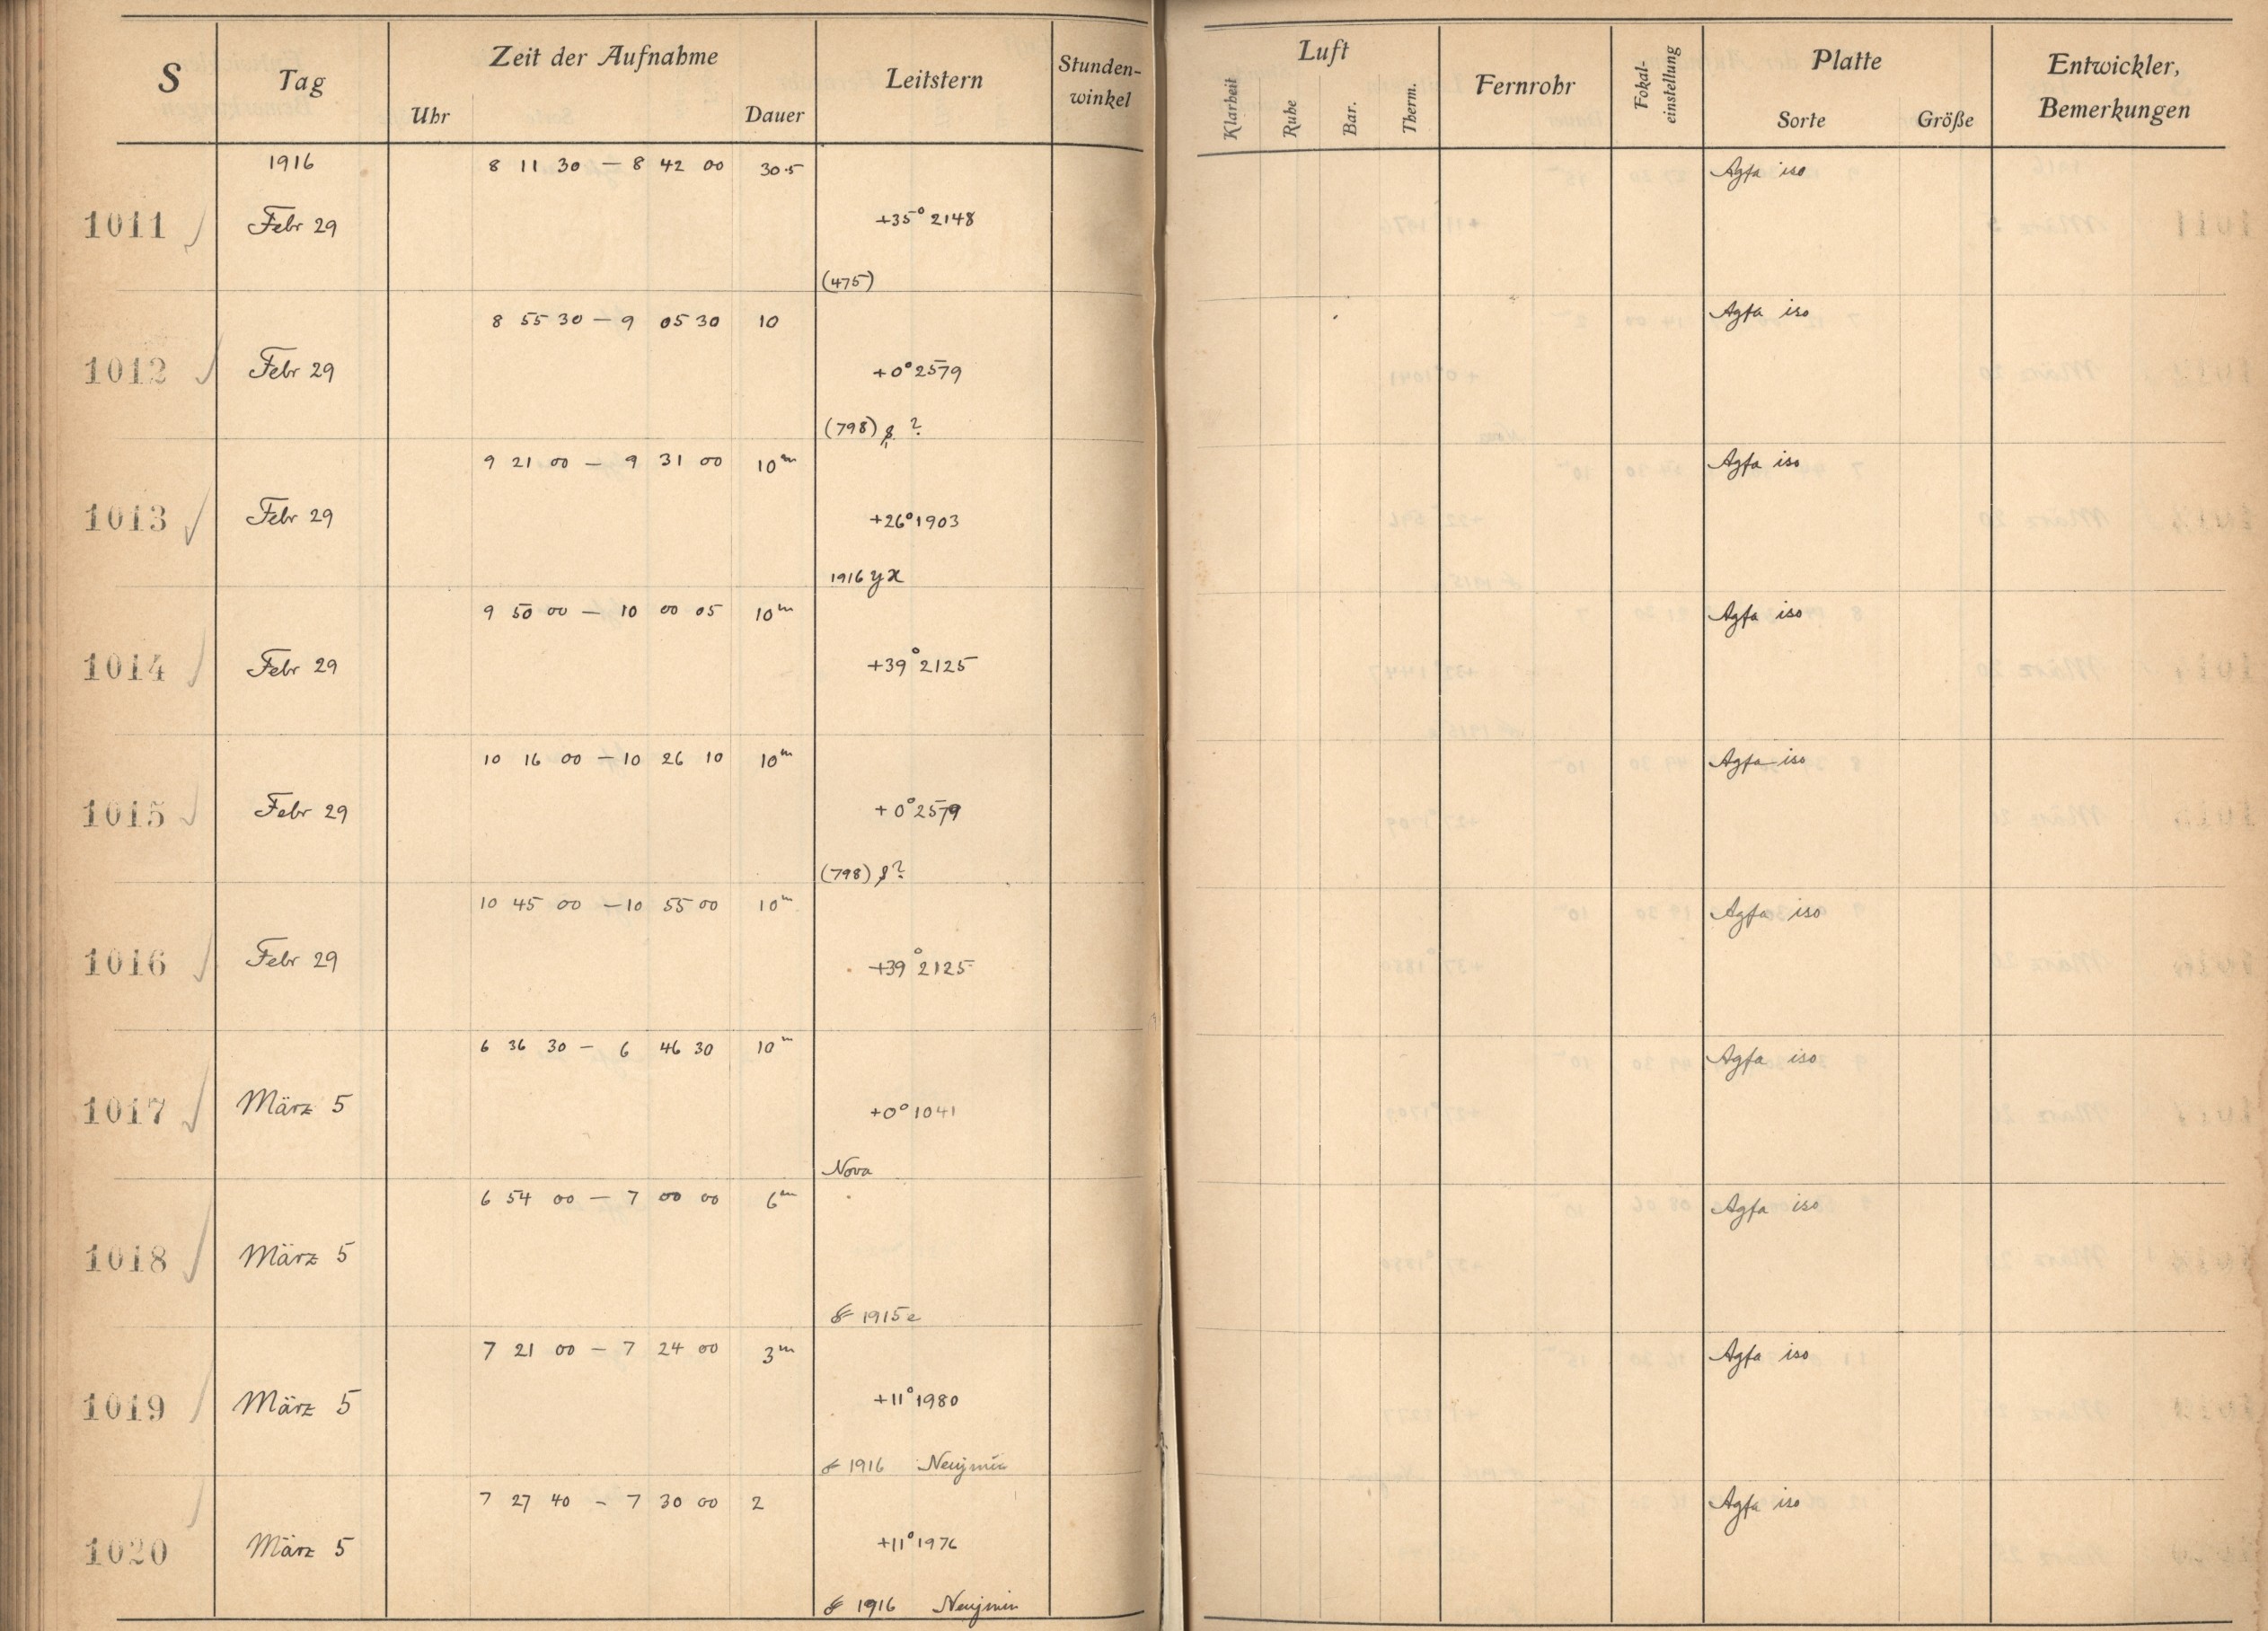 S Tag Zeit der Aufnahme Leitstern Stunden-winkel Luft Fernrohr Fokal-einstellung Platte Entwickler, Bemerkungen
Uhr Dauer Klarheit Ruhe Bar. Therm. Sorte Größe
1916 8 11 30 — 8 42 00 30.5 Agfa iso
1011 Febr 29 +35° 2148
(475)
8 55 30 — 9 05 30 10 Agfa iso
1012 Febr 29 +0° 2579
(798) ?
9 21 00 — 9 31 00 10m Agfa iso
1013 Febr 29 +26° 1903
1916 yx
9 50 00 — 10 00 05 10m Agfa iso
1014 Febr 29 +39° 2125
10 16 00 — 10 26 10 10m Agfa iso
1015 Febr 29 +0° 2579
(798) ?
10 45 00 — 10 55 00 10m Agfa iso
1016 Febr 29 +39° 2125
6 36 30 — 6 46 30 10m Agfa iso
1017 März 5 +0° 1041
Nova
6 54 00 — 7 00 00 6m Agfa iso
1018 März 5
1915e
7 21 00 — 7 24 00 3m Agfa iso
1019 März 5 +11° 1980
1916 Neujmin
7 27 40 — 7 30 00 2 Agfa iso
1020 März 5 +11° 1976
1916 Neujmin